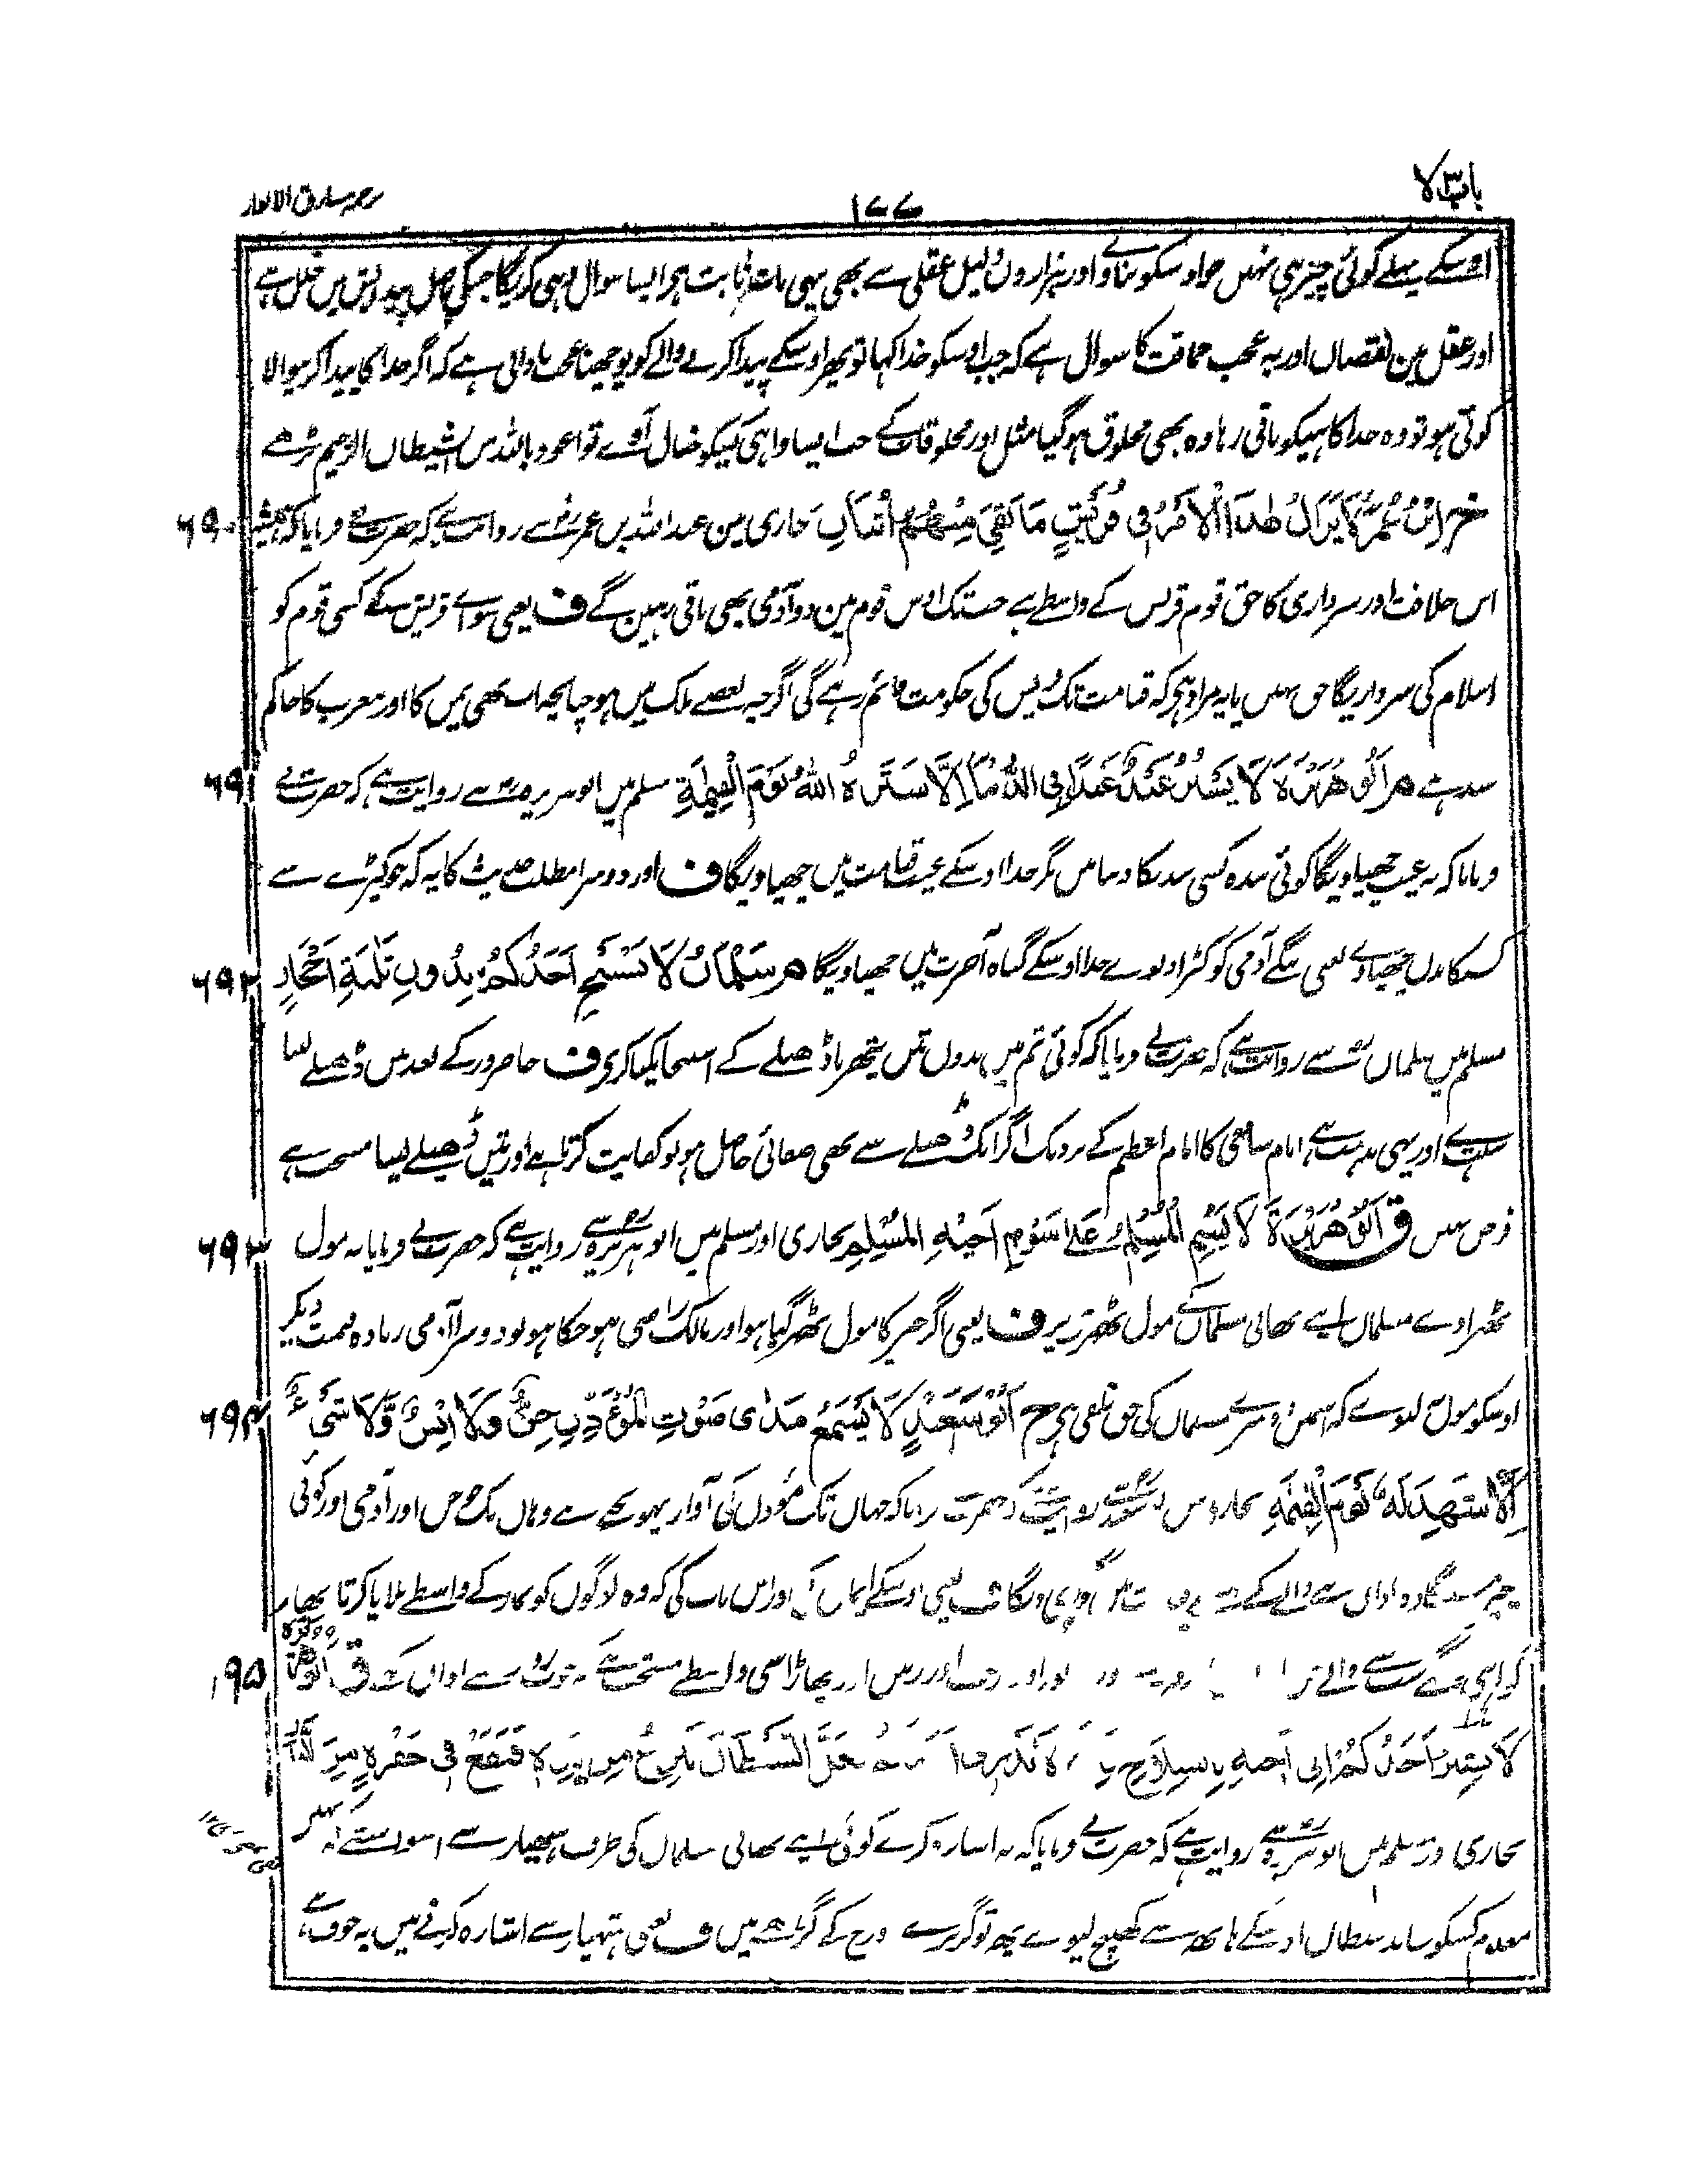 باب ۳ لا
۱۷۷
ترجمہ مشارق الانوار
اوسکے پہلے کوئی چیز ہی نہیں جو اوسکو بناوے اور ہزاروں دلیل عقلی سے بھی یہی بات ثابت ہے ایسا سوال وہی کریگا جسکی اصل پیدایش میں خلل ہے
اور عقل مین نقصان اور یہ عجب حماقت کا سوال ہے کہ جب اوسکو خدا کہا تو پھر اوسکے پیدا کرنے والے کو پوچھنا محض نادانی ہے کہ اگر خدا کا پیدا کرنیوالا
کوئی ہو تو وہ خدا کاہیکو باقی رہا وہ بھی مخلوق ہوگیا مثل اور مخلوقات کے جب ایسا واہی کسیکو خیال آوے تو اعوذ باللہ من الشیطان الرجیم پڑھے
۶۹۰
خ ابْنُ عُمَرَ لَا يَزَالُ هٰذَا الْاَمْرُ فِي قُرَيْشٍ مَا بَقِيَ مِنْهُمُ اثْنَانِ بخاری مین عبداللہ بن عمر رضہ سے روایت ہے کہ حضرت نے فرمایا کہ ہمیشہ
اس خلافت اور سرداری کا حق قوم قریش کے واسطے ہے جب تک اوس قوم مین دو آدمی بھی باقی رہین گے ف یعنی سواے قریش کے کسی قوم کو
اسلام کی سرداریکا حق نہیں یا یہ مراد ہے کہ قیامت تک قریش کی حکومت قائم رہے گی اگرچہ بعضے ملک میں ہو چنانچہ اب بھی یمن کا اور مغرب کا حاکم
۶۹۱
سید ہے م اَبُو هُرَيْرَةَ لَا يَسْتُرُ عَبْدٌ عَبْدًا فِي الدُّنْيَا اِلَّا سَتَرَهُ اللّٰهُ يَوْمَ الْقِيٰمَةِ مسلم میں ابوہریرہ رضہ سے روایت ہے کہ حضرت نے
فرمایا کہ نہ عیب چھپاویگا کوئی بندہ کسی بندیکا دنیا میں مگر خدا اوسکے عیب قیامت میں چھپاویگا ف اور دوسرا مطلب حدیث کا یہ کہ جو کپڑے سے
۶۹۲
کسیکا بدن چھپاوے یعنی ننگے آدمی کو کپڑا دیوے خدا اوسکے گناہ آخرت میں چھپاویگا م سَلْمَانُ لَا يَسْتَنْجِ اَحَدُكُمْ بِدُونِ ثَلٰثَةِ اَحْجَارٍ
مسلم میں سلمان رضہ سے روایت ہے کہ حضرت نے فرمایا کہ کوئی تم میں بدون تین پتھر یا ڈھیلے کے استنجا نکیا کرے ف جا ضرور کے بعد تین ڈھیلے لینا
سنت ہے اور یہی مذہب ہے امام شافعی کا امام اعظم کے نزدیک اگر ایک ڈھیلے سے بھی صفائی حاصل ہو تو کفایت کرتا ہے اور تین ڈھیلے لینا مستحب ہے
۶۹۳
فرض نہیں ق اَبُو هُرَيْرَةَ لَا يَسُمِ الْمُسْلِمُ عَلٰى سَوْمِ اَخِيْهِ الْمُسْلِمِ بخاری اور مسلم میں ابوہریرہ رضہ سے روایت ہے کہ حضرت نے فرمایا نہ مول
ٹھراوے مسلمان اپنے بھائی مسلمان کے مول ٹھرے پر ف یعنی اگر چیز کا مول ٹھر گیا ہو اور مالک راضی ہو چکا ہو تو دوسرا آدمی زیادہ قیمت دیکر
۶۹۴
اوسکو مول نہ لیوے کہ اسمیں دوسرے مسلمان کی حق تلفی ہے خ اَبُو سَعِيْدٍ لَا يَسْمَعُ مَدٰى صَوْتِ الْمُؤَذِّنِ جِنٌّ وَلَا اِنْسٌ وَّلَا شَيْءٌ
اِلَّا شَهِدَ لَهٗ يَوْمَ الْقِيٰمَةِ بخاری میں روایت حضرت کہ جہاں تک موذن کی آواز پہونچے سے وہاں تک جن اور آدمی اور کوئی
چیز اذان کے گواہی دیگا ف یعنی اوسکے ایمان اور اس بات کی کہ وہ لوگوں کو نماز کے واسطے بلایا کرتا تھا
۶۹۵
اور پہاڑ اسی واسطے مستحب ہے سے اذان ق اَبُو هُرَيْرَة
لَا يُشِيْرُ اَحَدُكُمْ اِلٰى اَخِيْهِ بِالسِّلَاحِ لَعَلَّ الشَّيْطَانَ يَنْزِعُ مِنْ يَدِهٖ فَيَقَعُ فِي حُفْرَةٍ مِنَ النَّارِ
بخاری اور مسلم میں ابوہریرہ رضہ سے روایت ہے کہ حضرت نے فرمایا کہ نہ اشارہ کرے کوئی اپنے بھائی مسلمان کی طرف ہتھیار سے اسواسطے کہ
معلوم کسیکو شاید شیطان اوسکے ہاتھ سے کھینچ لیوے پھر تو گر پڑے دوزخ کے گڑھے میں ف یعنی ہتھیار سے اشارہ کرنے میں یہ خوف ہے